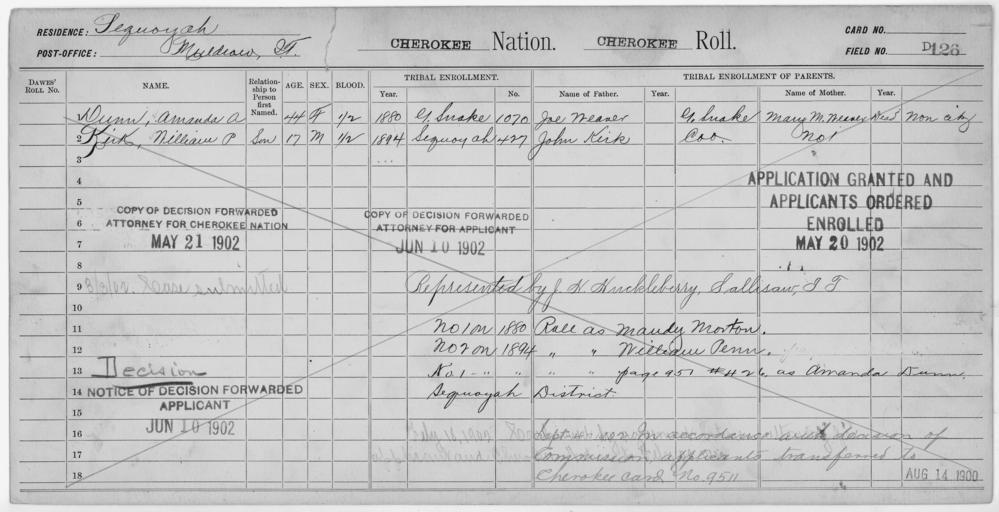 RESIDENCE: Sequoyah
POST-OFFICE: Muldrow, I.T.
CHEROKEE Nation. CHEROKEE Roll.
CARD NO.
FIELD NO. D126
DAWES' ROLL No. NAME. Relationship to Person first Named. AGE. SEX. BLOOD. TRIBAL ENROLLMENT. Year. No. TRIBAL ENROLLMENT OF PARENTS. Name of Father. Year. Name of Mother. Year.
1 Dunn, Amanda A 44 F 1/2 1880 G. Snake 1070 Joe Weaver G. Snake Mary M. Weaver Dead Non citz
2 Kirk, William P Son 17 M 1/2 1894 Sequoyah 427 John Kirk Coo. No1
3
4
5
6
7
8
9 Represented by J. H. Huckleberry, Sallisaw, I T
10
11 No 1 on 1880 Roll as Maudy Morton.
12 No 2 on 1894 " " William Penn.
13 No. 1 - " " " " page 951 # 426, as Amanda Dunn,
14 Sequoyah District.
15
16 Sept 4 1902 In accordance with decision of
17 Commission applicants transferred to
18 Cherokee Card No. 9511
COPY OF DECISION FORWARDED
ATTORNEY FOR CHEROKEE NATION
MAY 21 1902
COPY OF DECISION FORWARDED
ATTORNEY FOR APPLICANT
JUN 10 1902
APPLICATION GRANTED AND
APPLICANTS ORDERED
ENROLLED
MAY 20 1902
Case submitted
Decision
NOTICE OF DECISION FORWARDED
APPLICANT
JUN 10 1902
AUG 14 1900